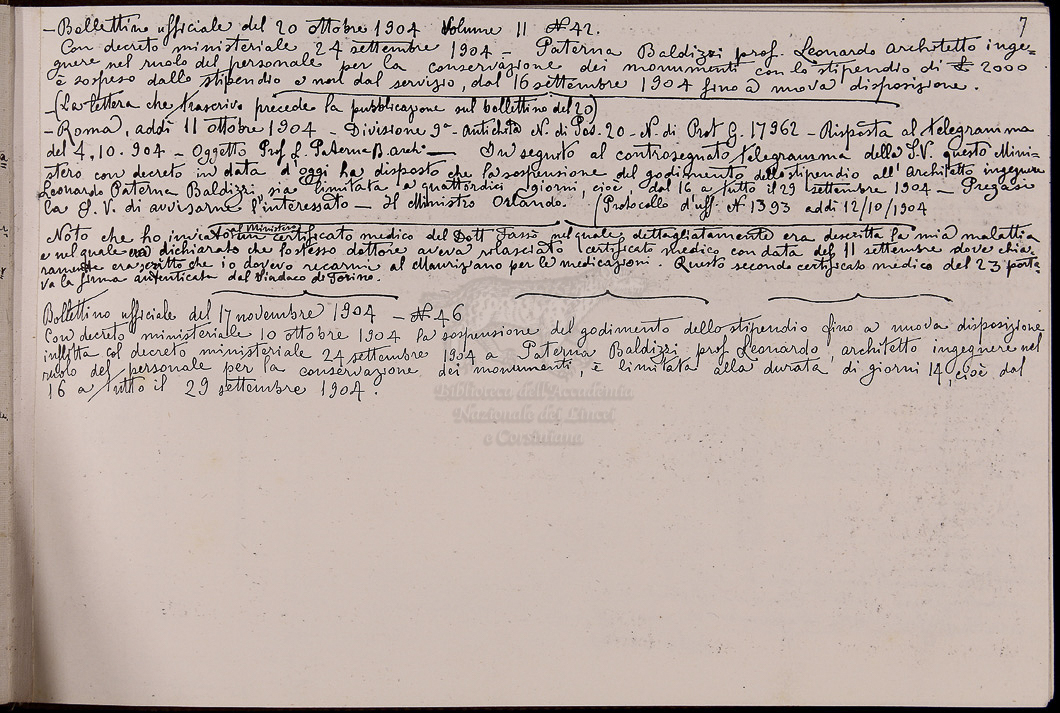 7
- Bollettino ufficiale del 20 ottobre 1904 Volume II N 42.
Con decreto ministeriale 24 settembre 1904 - Paterna Baldizzi prof. Leonardo architetto inge-
gnere nel ruolo del personale per la conservazione dei monumenti con lo stipendio di £ 2000
è sospeso dallo stipendio e non dal servizio, dal 16 settembre 1904 fino a nuova disposizione.
(La lettera che trascrivo precede la pubblicazione sul bollettino del 20)
- Roma, addì 11 ottobre 1904 - Divisione 9ª - Antichità N. di Pos. 20 - N. di Prot G. 17962 - Risposta al telegramma
del 4.10.904 - Oggetto Prof. L. Paterna B. archº - In seguito al controsegnato telegramma della S.V. questo Mini-
stero con decreto in data d'oggi ha disposto che la sospensione del godimento dello stipendio all'Architetto ingegnere
Leonardo Paterna Baldizzi sia limitata a quattordici giorni, cioè dal 16 a tutto il 29 settembre 1904 - Pregasi
la S.V. di avvisarne l'interessato - Il Ministro Orlando. (Protocollo d'uff. N 1393 addì 12/10/1904
Noto che ho inviato al Ministero un certificato medico del Dott Tasso nel quale dettagliatamente era descritta la mia malattia
e nel quale era dichiarato che lo stesso dottore aveva rilasciato certificato medico con data del 11 settembre dove chia-
ramente era scritto che io dovevo recarmi al Mauriziano per le medicazioni. Questo secondo certificato medico del 23 porta-
va la firma autenticata dal Sindaco di Torino.
Bollettino ufficiale del 17 novembre 1904 - N 46
Con decreto ministeriale 10 ottobre 1904 la sospensione del godimento dello stipendio fino a nuova disposizione
inflitta col decreto ministeriale 24 settembre 1904 a Paterna Baldizzi prof Leonardo, architetto ingegnere nel
ruolo del personale per la conservazione dei monumenti, è limitata alla durata di giorni 14, cioè dal
16 a tutto il 29 settembre 1904.
Biblioteca dell'Accademia
Nazionale dei Lincei
e Corsiniana